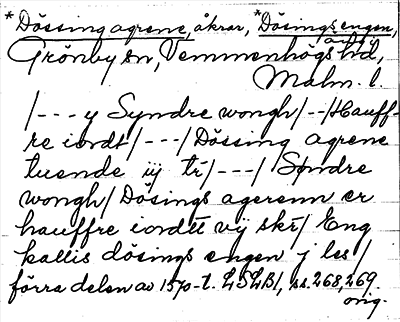 *Dössing agrene, åkrar, *Dösings engen, äng
Grönby sn, Vemmenhögs hd,
Malm. l.
/--- y Syndre wongh/--/Hauff-
re iordt/---/Dössing agrene
tuende iij tr/---/ Söndre
wongh/Dösings agerenn er
hauffre iordtt vij skr/ Eng
kallis dösings engen j les/
förra delen av 1570-t. LSLB1, ss. 268, 269.
orig.